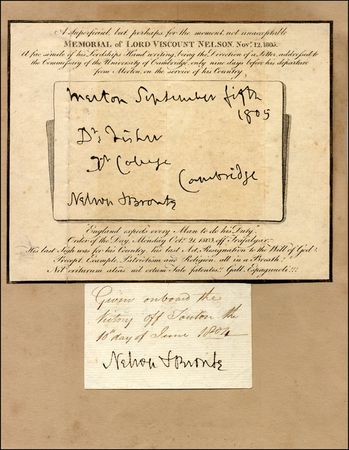 A superficial, but perhaps for the moment, not unacceptable
MEMORIAL of LORD VISCOUNT NELSON. Nov.r 12, 1805.
A fac simile of his Lordship's Hand writing, being the Direction of a Letter, addressed to
the Commissary of the University of Cambridge, only nine days before his departure
from Merton, on the service of his Country.
Merton September fifth
1805
Dr. Fisher
Cambridge
Nelson & Bronte
England expects every Man to do his Duty.
Order of the Day, Monday Oct.r 21, 1805, off Trafalgar.
His last Sigh was for his Country, his last Act, Resignation to the Will of God.
Precept, Example, Patriotism and Religion all in a Breath!
Nil oriturum alias, nil ortum tale fatentes. Gall. Espagnuoli!!!
Given onboard the
Victory off Toulon the
10th day of June 1804
Nelson & Bronte